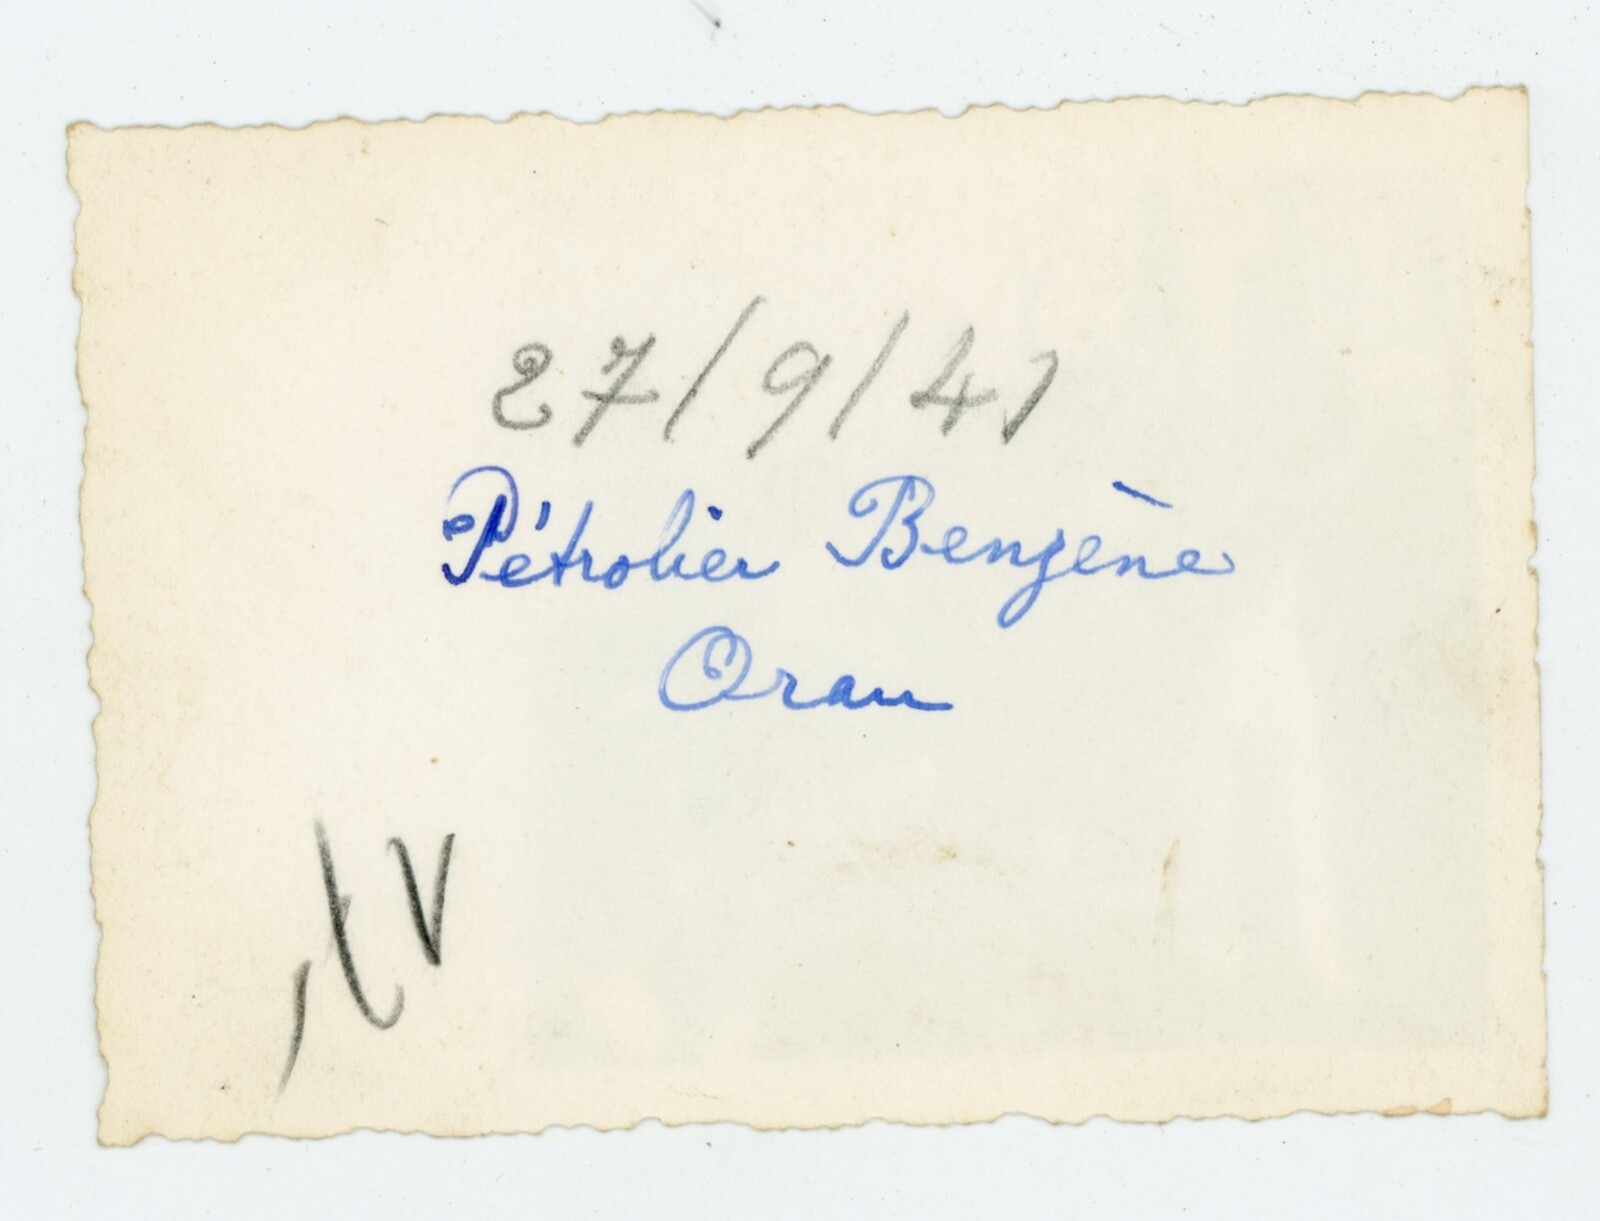 27/9/41
Pétrolier Benzène
Oran